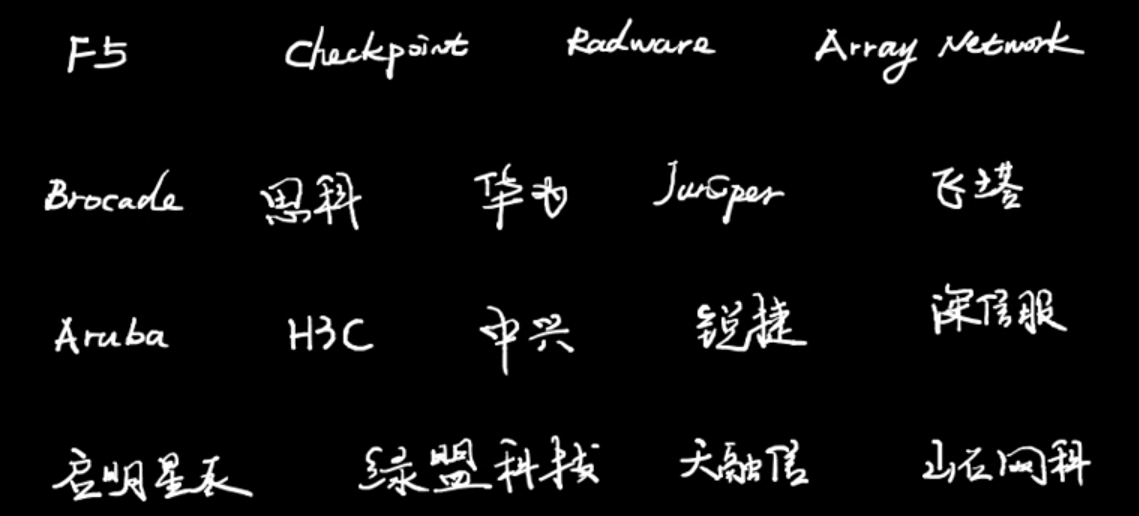 F5 Checkpoint Radware Array Network
Brocade 思科 华为 Juniper 飞塔
Aruba H3C 中兴 锐捷 深信服
启明星辰 绿盟科技 天融信 山石网科